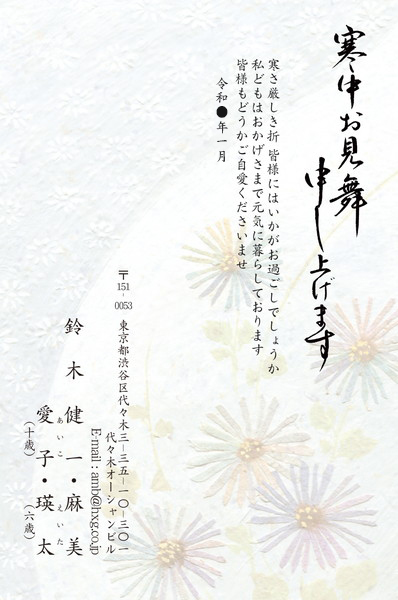 寒中お見舞
申し上げます
寒さ厳しき折 皆様にはいかがお過ごしでしょうか
私どもはおかげさまで元気に暮らしております
皆様もどうかご自愛くださいませ
令和●年一月
〒151-0053
東京都渋谷区代々木三-三五-一〇-三〇一
代々木オーシャンビル
E-mail : amb@hxg.co.jp
鈴木 健一・麻美
愛子・瑛太
あいこ えいた
（十歳） （六歳）